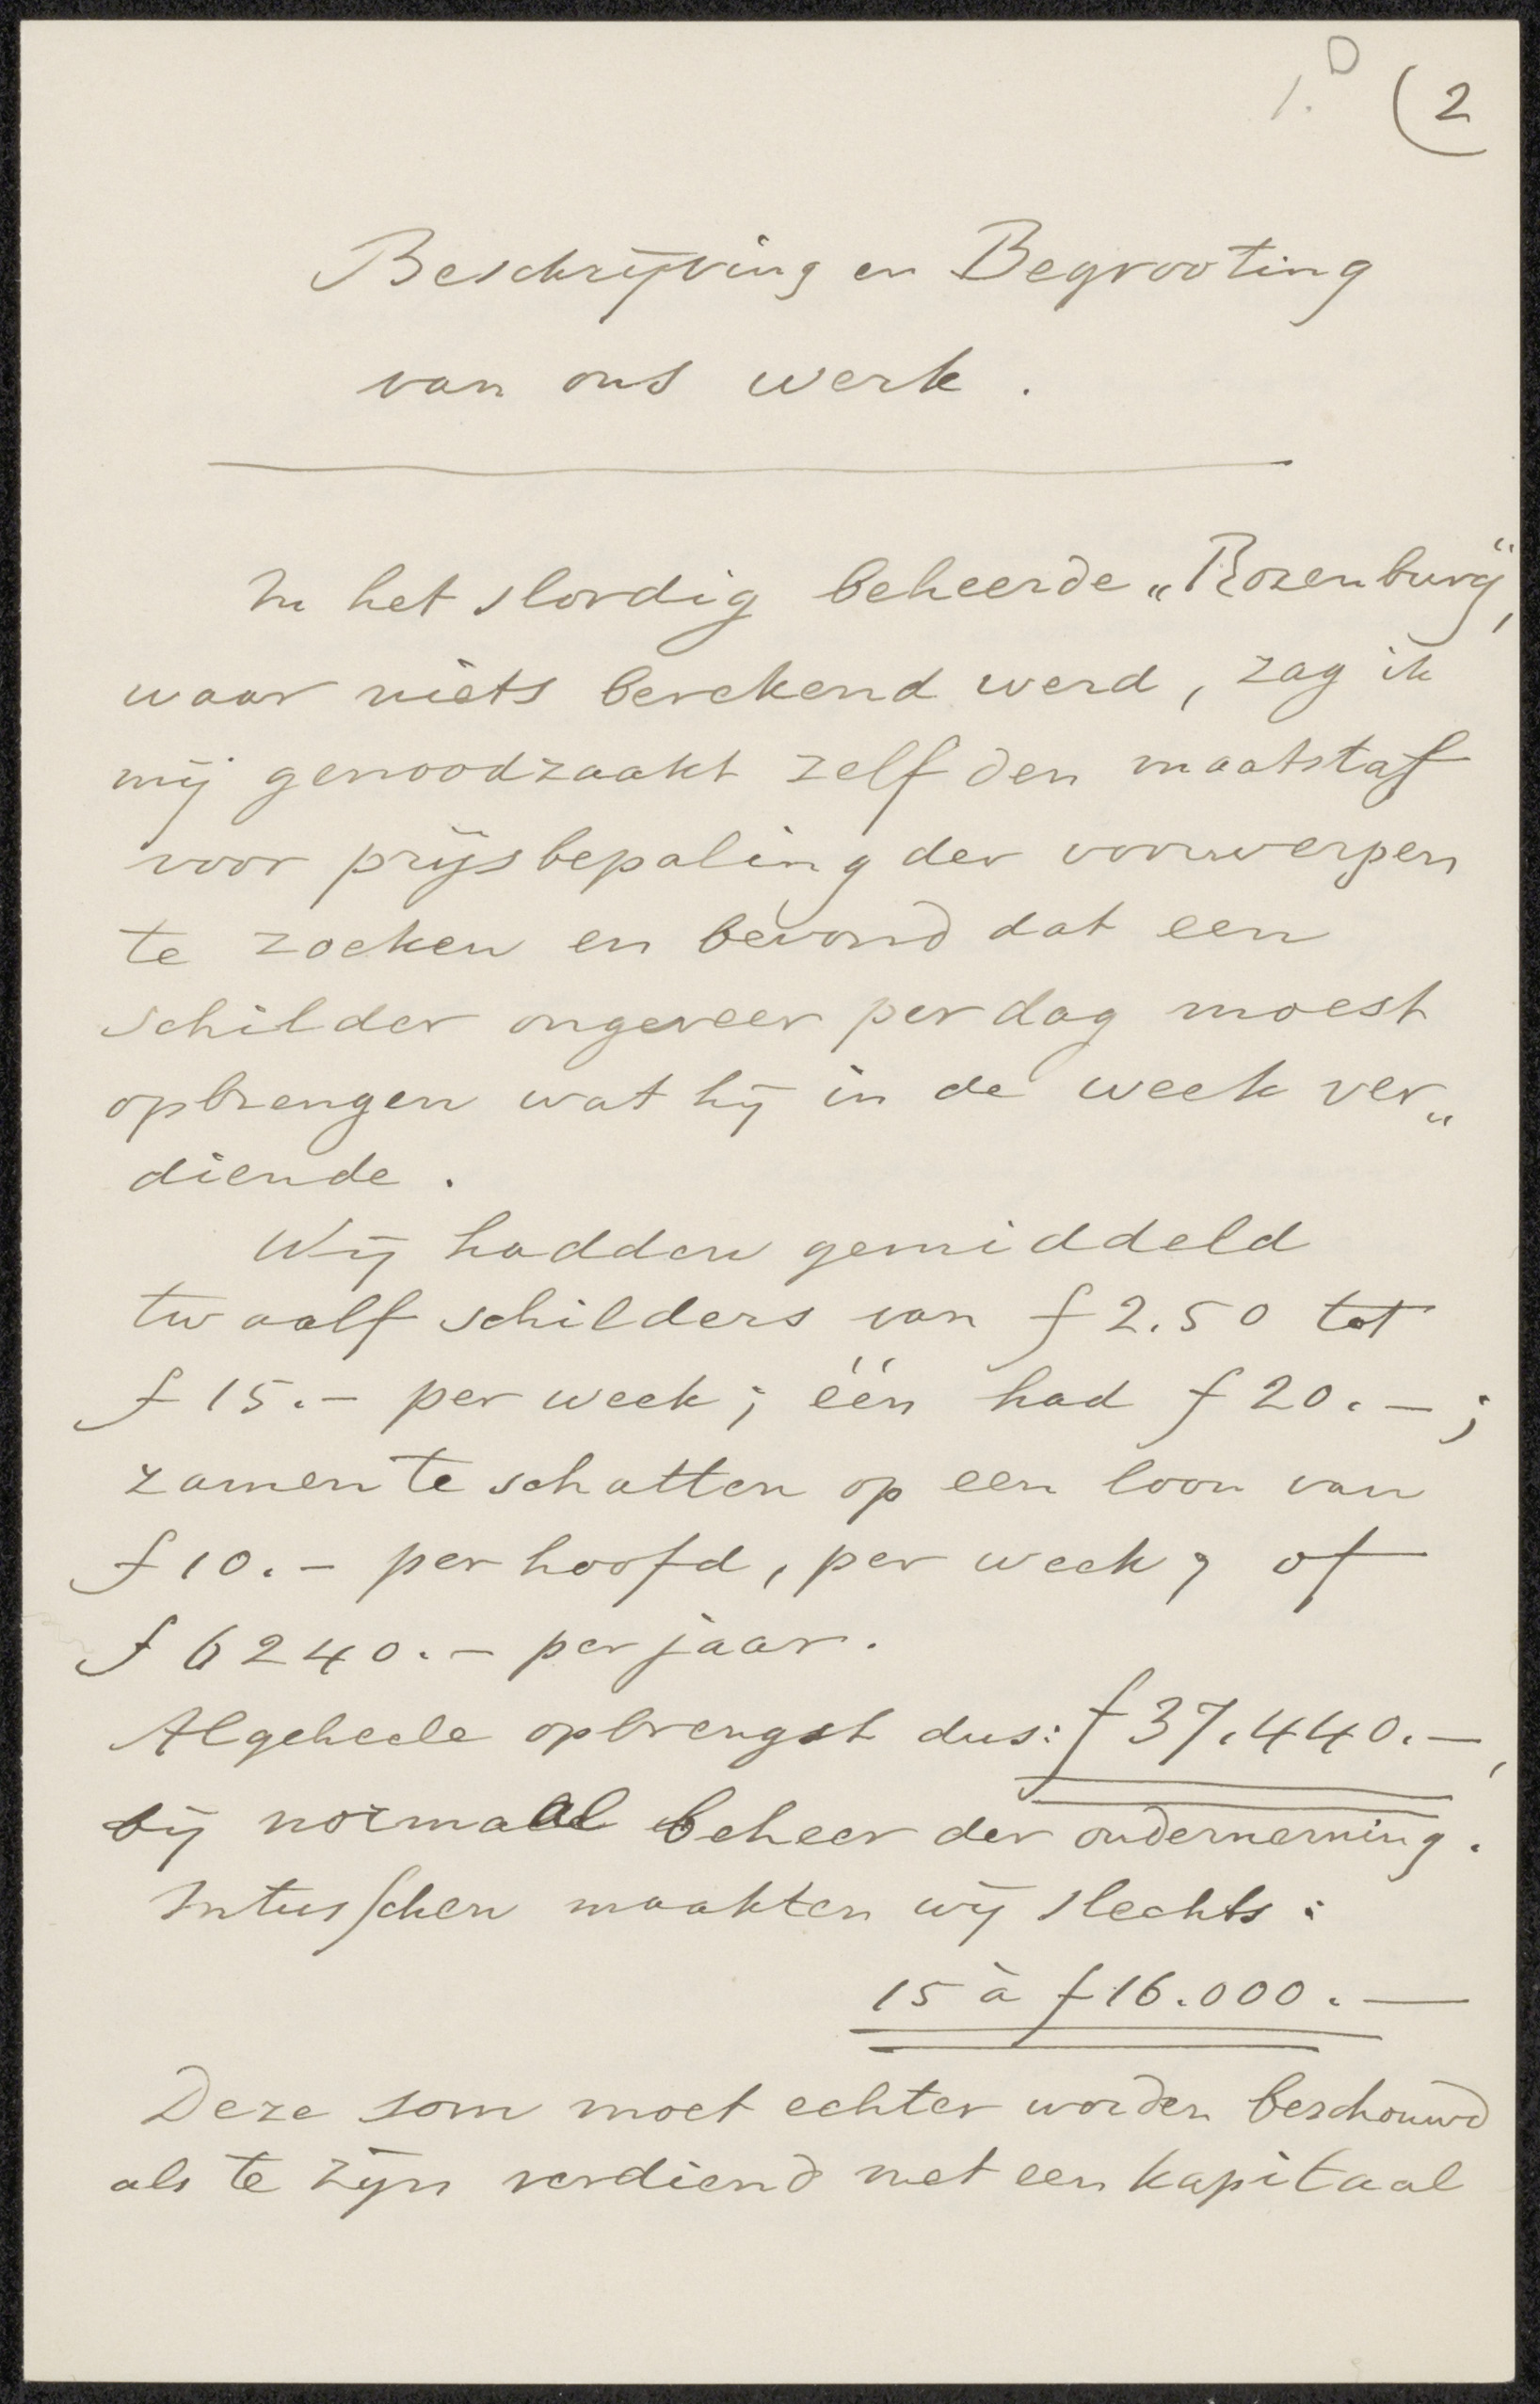 1.D (2
Beschrijving en Begrooting
van ons werk.
In het slordig beheerde „Rozenburg",
waar niets berekend werd, zag ik
mij genoodzaakt zelf den maatstaf
voor prijsbepaling der voorwerpen
te zoeken en bevond dat een
schilder ongeveer per dag moest
opbrengen wat hij in de week ver„
diende.
Wij hadden gemiddeld
twaalf schilders van f 2.50 tot
f 15.- per week; één had f 20.-;
zamen te schatten op een loon van
f 10.- per hoofd, per week, of
f 6240.- per jaar.
Algeheele opbrengst dus: f 37.440.-,
bij normaal beheer der onderneming.
Intusschen maakten wij slechts:
15 à f 16.000.-
Deze som moet echter worden beschouwd
als te zijn verdiend met een kapitaal